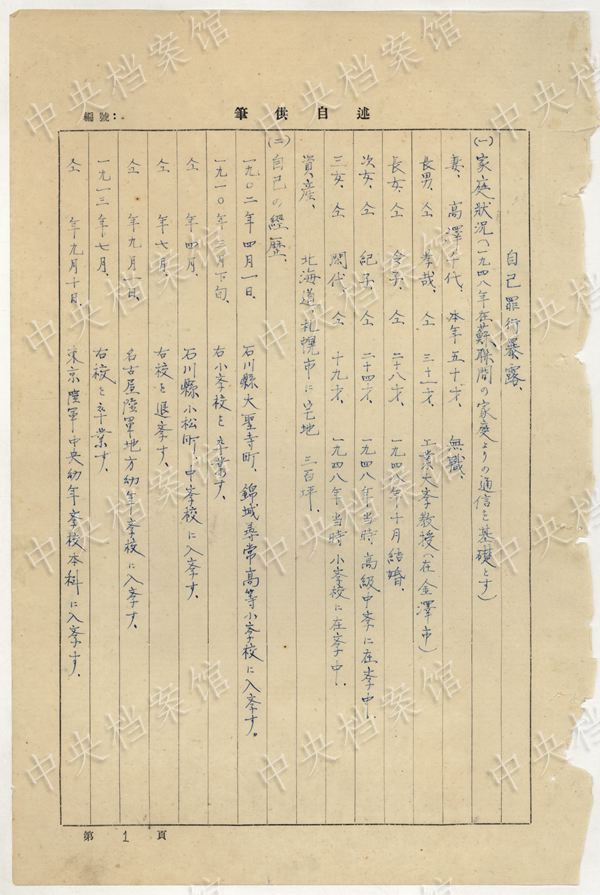 編號：
筆供自述
自己罪行暴露、
(一) 家庭ノ狀況（一九四八年在蘇聯間の家庭よりの通信を基礎とす）
妻、高澤千代、本年五十才、無職、
長男、仝 孝哉、仝 三十一才、工業大学教授（在金澤市）
長女、仝 令子、仝 二十八才、一九四八年十月結婚、
次女、仝 紀子、仝 二十四才、一九四八年当時、高級中学に在学中、
三女、仝 代、仝 十九才、一九四八年当時、小学校に在学中、
資産、北海道、札幌市に宅地 三百坪、
(二) 自己の經歴、
一九〇二年四月一日、石川縣大聖寺町、錦城尋常高等小学校に入学す。
一九一〇年三月下旬、右小学校を卒業す、
仝 年四月、石川縣小松町、中学校に入学す、
仝 年七月、右校を退学す、
仝 年九月一日、名古屋陸軍地方幼年学校に入学す、
一九一三年七月、右校を卒業す、
仝 年九月十日、東京陸軍中央幼年学校本科に入学す、
第 1 頁
中央档案馆